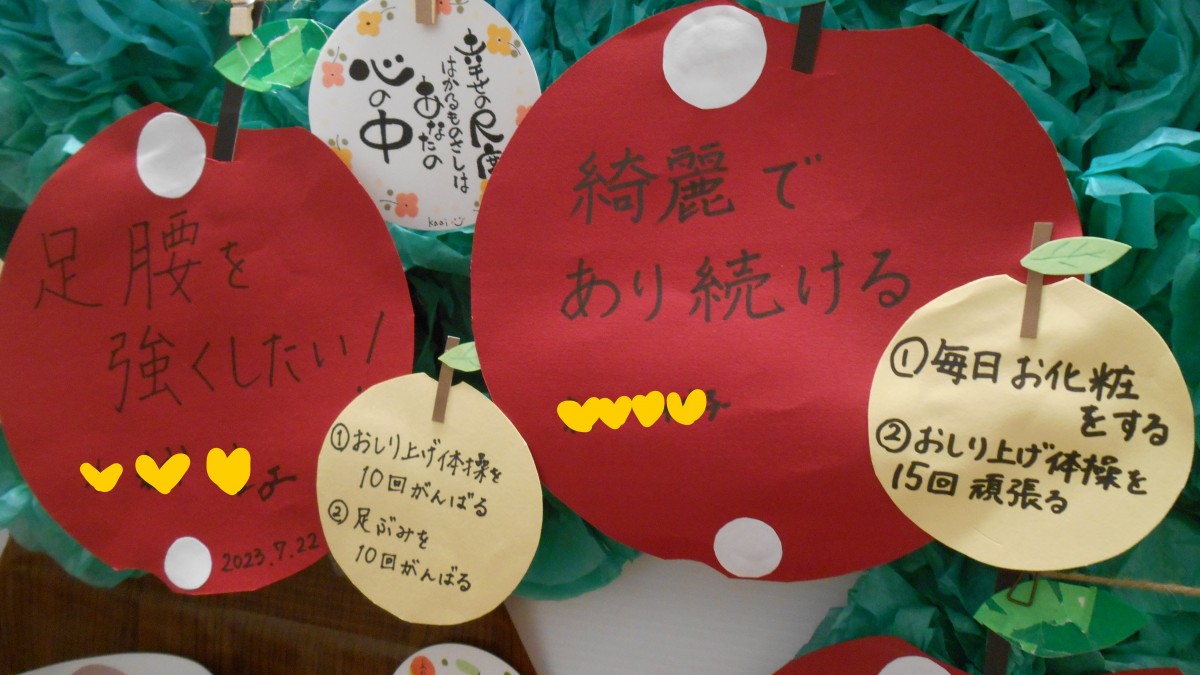 足腰を
強くしたい!
2023.7.22
①おしり上げ体操を
10回がんばる
②足ぶみを
10回がんばる
はかるものさしは
あなたの
心の中
kaoi
綺麗で
あり続ける
①毎日お化粧
をする
②おしり上げ体操を
15回頑張る